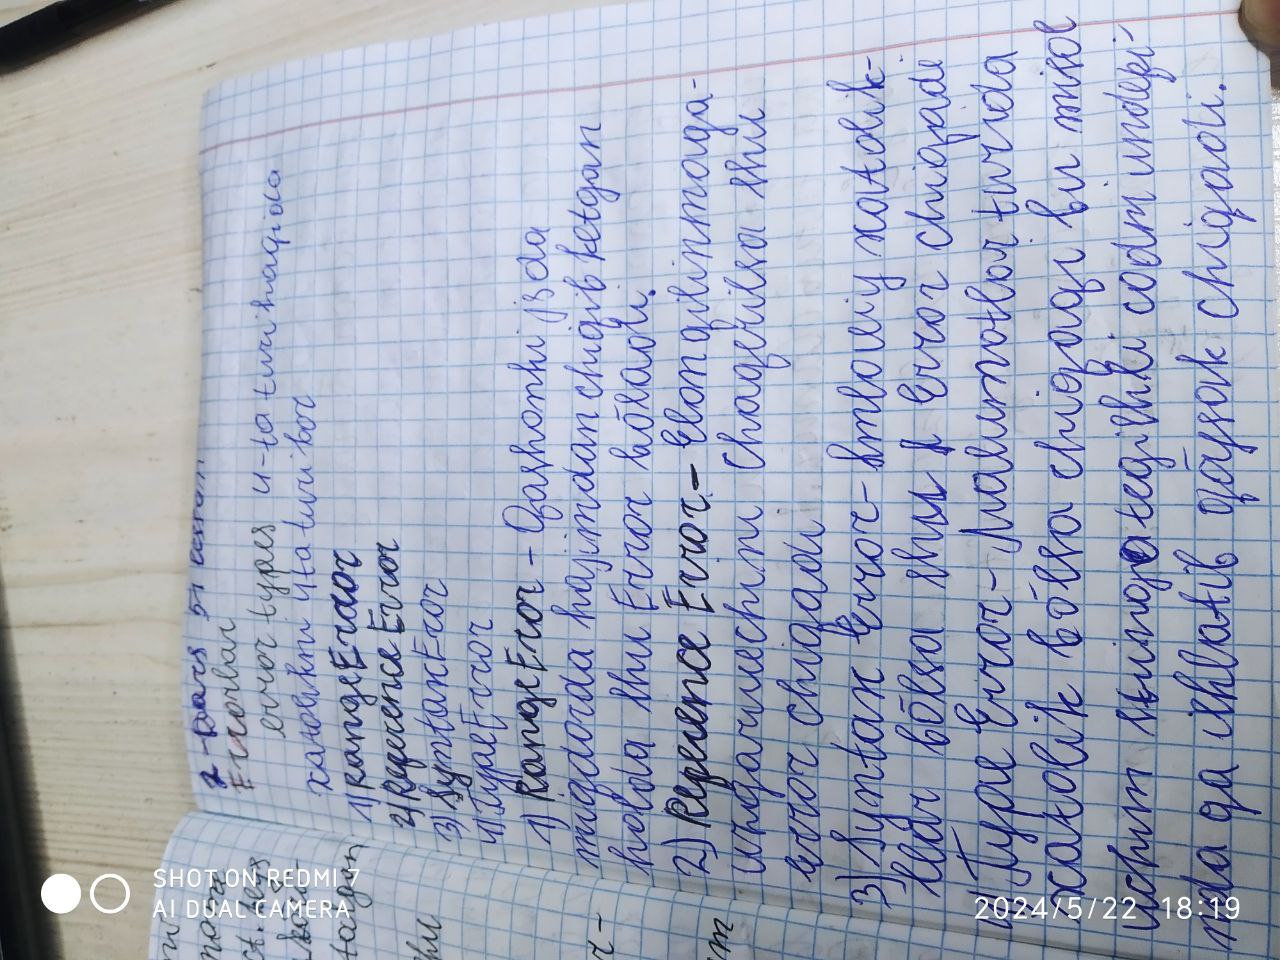 2-Dars 5J
Errorlar
error types 4-ta turi haqida
xatolikni 4ta turi bor
1) Range Error
2) Reference Error
3) Syntax Error
4) Type Error
1) Range Error - Qashonki js da
miqdorda hajmdan chiqib ketgan
holda shu Error bo'ladi.
2) Reference Error - Elon qilinmaga-
uzgaruvchini chaqerilsa shu
error chiqadi
3) Syntax Error - Imloviy xatolik-
klar bo'lsa shu Error chiqadi
4) Type Error - Malumotlar turida
xatolik bo'lsa chiqadi bu misol
uchun stringa tegishli undefi-
nda qa ishlatib qo'ysak chiqadi.
SHOT ON REDMI 7
AI DUAL CAMERA
2024/5/22 18:19